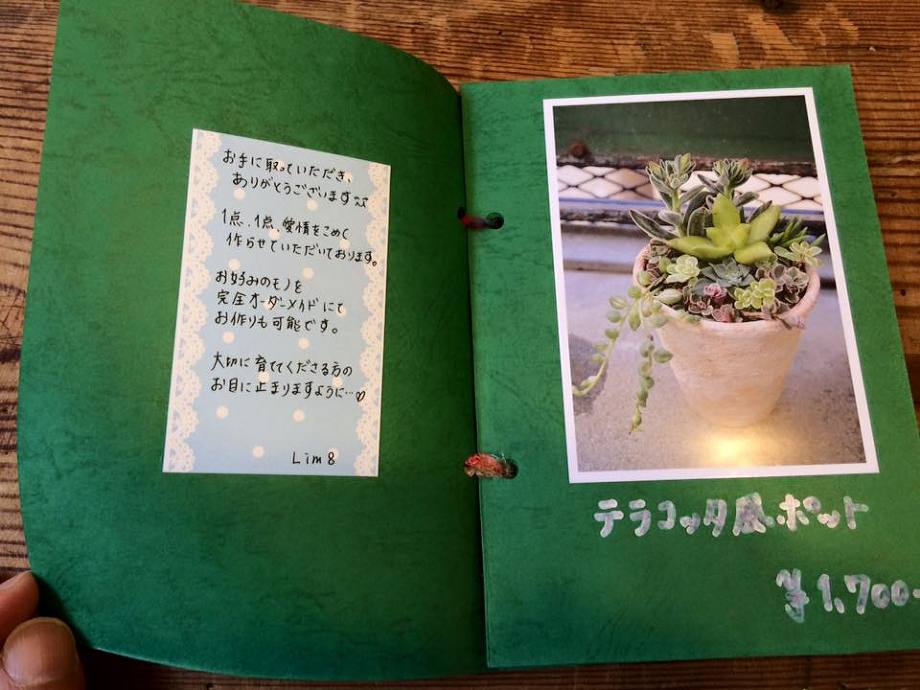 お手に取っていただき、
ありがとうございます
1点、1点、愛情をこめて
作らせていただいております。
お好みのモノを
完全オーダーメイドにて
お作りも可能です。
大切に育ててくださる方の
お目に止まりますように…♡
Lim8
テラコッタ風ポット
¥1,700-